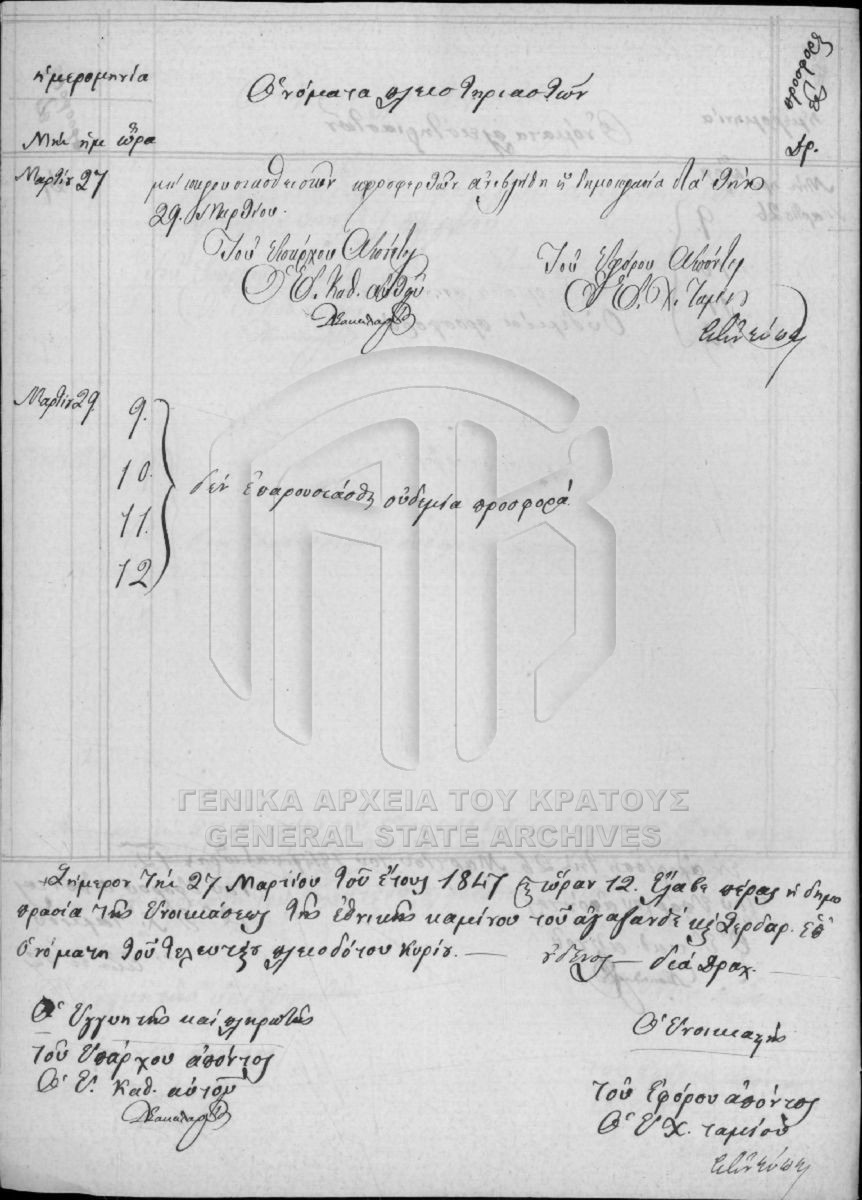 ἡμερομηνία
Ὀνόματα πλειστηριαστῶν
προσφοραὶ
Μὴν ἡμ ὥρα
Δρ.
Μαρτίου 27 μὴ παρουσιασθεισῶν προσφορῶν ἀνεβλήθη ἡ δημοπρασία διὰ τὴν
29. Μαρτίου.
Τοῦ Ἐπάρχου Ἀπόντος
Ὁ Ε. Καθ. αὐτοῦ
Τοῦ Ἐφόρου Ἀπόντος
Ὁ Ε. Χ. Ταμίου
Μαρτίου 29. 9.
10.
11.
12
δὲν ἐπαρουσιάσθη οὐδεμία προσφορά.
ΓΕΝΙΚΑ ΑΡΧΕΙΑ ΤΟΥ ΚΡΑΤΟΥΣ
GENERAL STATE ARCHIVES
Σήμερον τὴν 27 Μαρτίου τοῦ ἔτους 1847 ὥραν 12. ἔλαβε πέρας ἡ δημο
πρασία τῆς ἐνοικιάσεως τῆς ἐθνικῆς καμίνου τοῦ
ὀνόματι τοῦ τελευταίου πλειοδότου Κυρίου. — οὐδενὸς — διὰ Δραχ. —
Ὁ Ἐγγυητὴς καὶ πληρωτὴς
Ὁ Ἐνοικιαστὴς
τοῦ Ἐπάρχου ἀπόντος
Ὁ Ε. Καθ. αὐτοῦ
τοῦ Ἐφόρου ἀπόντος
Ὁ Ε Χ. ταμίου